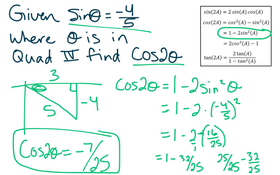 Given sinθ = -4/5
where θ is in
Quad IV find cos2θ
3
5
-4
cos2θ = -7/25
sin(2A) = 2 sin(A) cos(A)
cos(2A) = cos²(A) − sin²(A)
= 1 − 2sin²(A)
= 2cos²(A) − 1
tan(2A) = 2 tan(A) / 1 − tan²(A)
cos2θ = 1 - 2 sin²θ
= 1 - 2 · (-4/5)²
= 1 - 2/1 · (16/25)
= 1 - 32/25 25/25 - 32/25